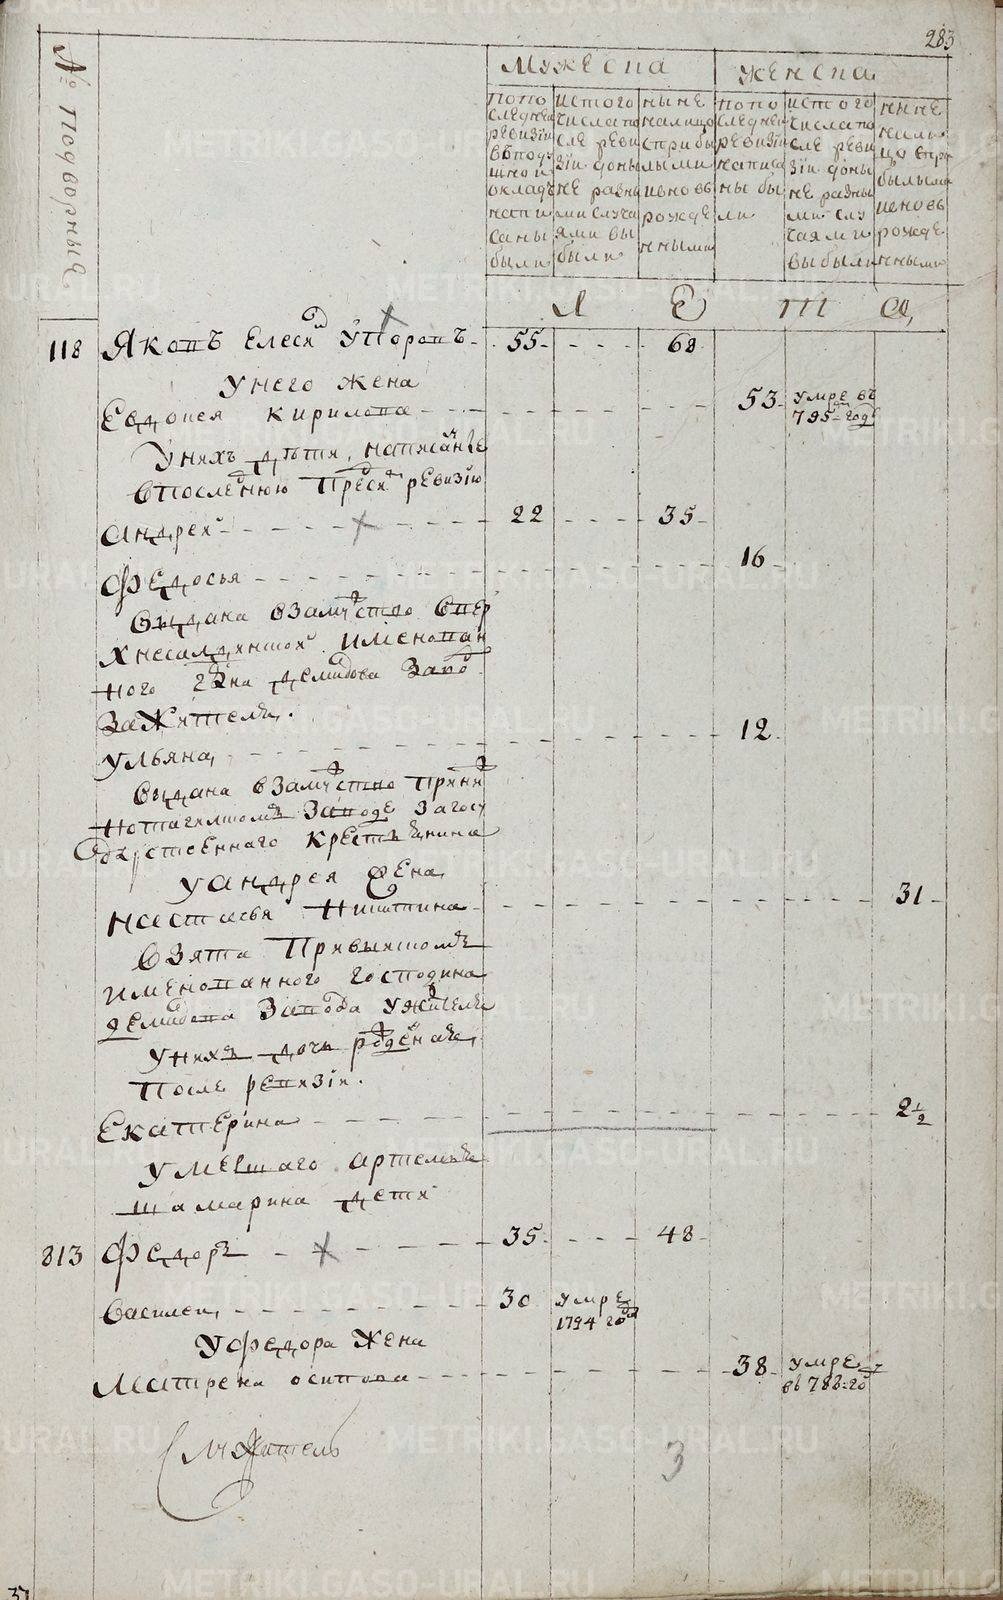 283
№ подворные
мужеска
женска
попо следнеи ревизiи вподушнои окладъ написаны были
истого числа после ревизiи доныне разными случаями выбыли
ныне налицо сприбылыми иновь рожденными
попо следнеи ревизiи написаны были
истого числа после ревизiи доныне разными случаями выбыли
ныне налицо сприбылыми иеновь рожденными
Л Е Т а
118 Яковъ Елесеи 55 68
унего жена
Евдокея кирилова 53 умре въ 795 году
униχъ дѣти, написанные
впоследнюю пред сим ревизiю
андреи 22 35
Федосья 16
выдана взамужство вверх
незалдинскои именован
ного гдина демидова заво
зажителя,
ульяна, 12
выдана взамужство при ни
нотагилском заводе загосу
дарственнаго крестьянина
уандрея жена
настасья Никитина 31
взята
именованного господина
демидова завода ужителя
униχъ дочь рожденая,
после ревизiи.
Екатерина 2 1/2
умершаго артемья
шамарина дети
813 Федоръ 35 48
василеи, 30 умре 1794 года
уфедора жена
матрена осипова 38 умре въ 788 го
3